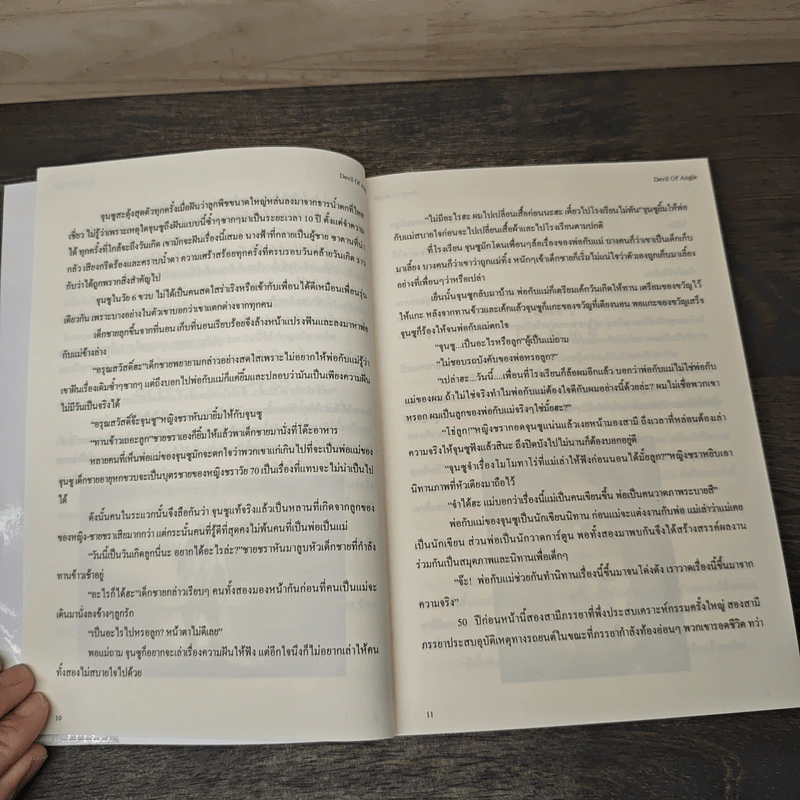 Devil Of Angle
จุนซูสะดุ้งสุดตัวทุกครั้งเมื่อฝันว่าลูกพีชขนาดใหญ่หล่นลงมาจากธารน้ำตกที่ไหล
เชี่ยว ไม่รู้ว่าเพราะเหตุใดจุนซูถึงฝันแบบนี้ซ้ำๆซากๆมาเป็นระยะเวลา 10 ปี ตั้งแต่จำความ
ได้ ทุกครั้งที่ใกล้จะถึงวันเกิด เขามักจะฝันเรื่องนี้เสมอ นางฟ้าที่กลายเป็นผู้ชาย ซาตานที่น่า
กลัว เสียงกรีดร้องและคราบน้ำตา ความเศร้าสร้อยทุกครั้งที่ครบรอบวันคล้ายวันเกิด ราว
กับว่าได้ถูกพรากสิ่งสำคัญไป
จุนซูในวัย 6 ขวบ ไม่ได้เป็นคนสดใสร่าเริงหรือเข้ากับเพื่อนได้ดีเหมือนเพื่อนรุ่น
เดียวกัน เพราะบางอย่างในตัวเขาบอกว่าเขาแตกต่างจากทุกคน
เด็กชายลุกขึ้นจากที่นอน เก็บที่นอนเรียบร้อยจึงล้างหน้าแปรงฟันและลงมาหาพ่อ
กับแม่ข้างล่าง
“อรุณสวัสดิ์ฮะ”เด็กชายพยายามกล่าวอย่างสดใสเพราะไม่อยากให้พ่อกับแม่รู้ว่า
เขาฝันเรื่องเดิมซ้ำๆซากๆ แต่ถึงบอกไปพ่อกับแม่ก็แค่ยิ้มและปลอบว่ามันเป็นเพียงความฝัน
ไม่มีวันเป็นจริงได้
“อรุณสวัสดิ์จ๊ะจุนซู”หญิงชราหันมายิ้มให้กับจุนซู
“ทานข้าวเถอะลูก”ชายชราเองก็ยิ้มให้แล้วพาเด็กชายมานั่งที่โต๊ะอาหาร
หลายคนที่เห็นพ่อแม่ของจุนซูมักจะตกใจว่าพวกเขาแก่เกินไปที่จะเป็นพ่อแม่ของ
จุนซู เด็กชายอายุหกขวบจะเป็นบุตรชายของหญิงชราวัย 70 เป็นเรื่องที่แทบจะไม่น่าเป็นไป
ได้
ดังนั้นคนในระแวกนั้นจึงลือกันว่า จุนซูแท้จริงแล้วเป็นหลานที่เกิดจากลูกของ
ของหญิง-ชายชราเสียมากกว่า แต่กระนั้นคนที่รู้ดีที่สุดคงไม่พ้นคนที่เป็นพ่อเป็นแม่
“วันนี้เป็นวันเกิดลูกนี่นะ อยากได้อะไรล่ะ?”ชายชราหันมาลูบหัวเด็กชายที่กำลัง
ทานข้าวเช้าอยู่
“อะไรก็ได้ฮะ”เด็กชายกล่าวเรียบๆ คนทั้งสองมองหน้ากันก่อนที่คนเป็นแม่จะ
เดินมานั่งลงข้างๆลูกรัก
“เป็นอะไรไปหรอลูก? หน้าตาไม่ดีเลย”
พอแม่ถาม จุนซูก็อยากจะเล่าเรื่องความฝันให้ฟัง แต่อีกใจนึงก็ไม่อยากเล่าให้คน
ทั้งสองไม่สบายใจไปด้วย
10
Devil Of Angle
“ไม่มีอะไรฮะ ผมไปเปลี่ยนเสื้อก่อนนะฮะ เดี๋ยวไปโรงเรียนไม่ทัน”จุนซูยิ้มให้พ่อ
กับแม่สบายใจก่อนจะไปเปลี่ยนเสื้อผ้าและไปโรงเรียนตามปกติ
ที่โรงเรียน จุนซูมักโดนเพื่อนๆล้อเรื่องของพ่อกับแม่ บางคนก็ว่าเขาเป็นเด็กเก็บ
มาเลี้ยง บางคนก็ว่าเขาว่าถูกแม่ทิ้ง หนักๆเข้าเด็กชายก็เริ่มไม่แน่ใจว่าตัวเองถูกเก็บมาเลี้ยง
อย่างที่เพื่อนๆว่าหรือเปล่า
เย็นนั้นจุนซูกลับมาบ้าน พ่อกับแม่ก็เตรียมเค้กวันเกิดให้ทาน เตรียมของขวัญไว้
ให้แกะ หลังจากทานข้าวและเค้กแล้วจุนซูก็แกะของขวัญที่เตียงนอน พอแกะของขวัญเสร็จ
จุนซูก็ร้องไห้จนพ่อกับแม่ตกใจ
“จุนซู...เป็นอะไรหรือลูก”ผู้เป็นแม่ถาม
“ไม่ชอบรถบังคับของพ่อหรอลูก?”
“เปล่าฮะ...วันนี้....เพื่อนที่โรงเรียนก็ล้อผมอีกแล้ว บอกว่าพ่อกับแม่ไม่ใช่พ่อกับ
แม่ของผม ถ้าไม่ใช่จริงทำไมพ่อกับแม่ต้องใจดีกับผมอย่างนี้ด้วยล่ะ? ผมไม่เชื่อพวกเขา
หรอก ผมเป็นลูกของพ่อกับแม่จริงๆใช่มั้ยฮะ?”
“โธ่ลูก!”หญิงชรากอดจุนซูแน่นแล้วเงยหน้ามองสามี ถึงเวลาที่หล่อนต้องเล่า
ความจริงให้จุนซูฟังแล้วสินะ ถึงปิดบังไปไม่นานก็ต้องบอกอยู่ดี
“จุนซูจำเรื่องโมโมทาโร่ที่แม่เล่าให้ฟังก่อนนอนได้มั้ยลูก?”หญิงชราหยิบเอา
นิทานภาพที่หัวเตียงมาถือไว้
“จำได้ฮะ แม่บอกว่าเรื่องนี้แม่เป็นคนเขียนขึ้น พ่อเป็นคนวาดภาพระบายสี”
พ่อกับแม่ของจุนซูเป็นนักเขียนนิทาน ก่อนแม่จะแต่งงานกับพ่อ แม่เล่าว่าแม่เคย
เป็นนักเขียน ส่วนพ่อเป็นนักวาดการ์ตูน พอทั้งสองมาพบกันจึงได้สร้างสรรค์ผลงาน
ร่วมกันเป็นสมุดภาพและนิทานเพื่อเด็กๆ
“จ๊ะ! พ่อกับแม่ช่วยกันทำนิทานเรื่องนี้ขึ้นมาจนโด่งดัง เราวาดเรื่องนี้ขึ้นมาจาก
ความจริง”
50 ปีก่อนหน้านี้สองสามีภรรยาที่พึ่งประสบเคราะห์กรรมครั้งใหญ่ สองสามี
ภรรยาประสบอุบัติเหตุทางรถยนต์ในขณะที่ภรรยากำลังท้องอ่อนๆ พวกเขารอดชีวิต ทว่า
11